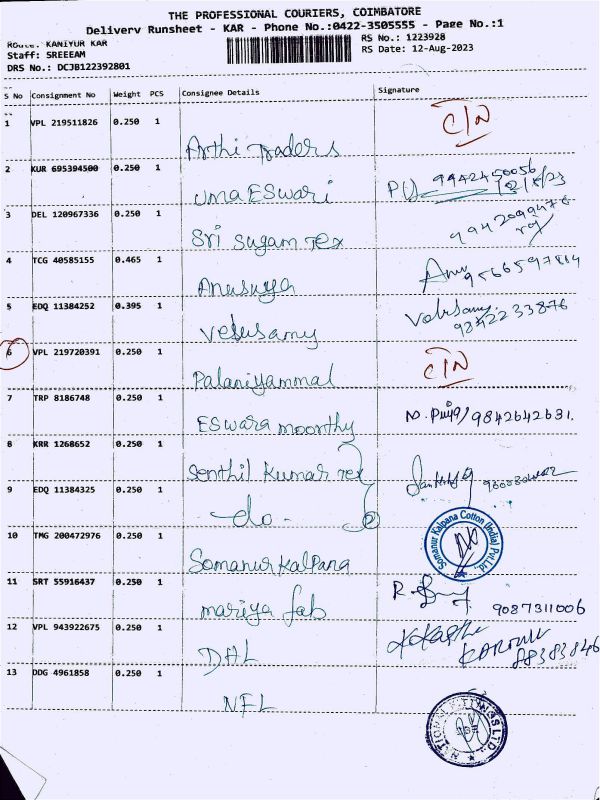 THE PROFESSIONAL COURIERS, COIMBATORE
Delivery Runsheet - KAR - Phone No.:0422-3505555 - Page No.:1
Route: KANIYUR KAR
RS No.: 1223928
Staff: SREEEAM
RS Date: 12-Aug-2023
DRS No.: DCJB122392801
S No Consignment No Weight PCS Consignee Details Signature
1 VPL 219511826 0.250 1 Arthi Traders C/N
2 KUR 695394500 0.250 1 Uma ESwari 9942450056 12/8/23
3 DEL 120967336 0.250 1 Sri Sugam Tex
4 TCG 40585155 0.465 1 Anusuya Anu 9566597814
5 EDQ 11384252 0.395 1 Velusamy 9842233876
6 VPL 219720391 0.250 1 Palaniyammal C/N
7 TRP 8186748 0.250 1 ESwara moorthy 9842642631.
8 KRR 1268652 0.250 1 Senthil Kumar Tex
9 EDQ 11384325 0.250 1 -do-
10 TMG 200472976 0.250 1 Somanur Kalpana
Somanur Kalpana Cotton (India) Pvt.Ltd.
11 SRT 55916437 0.250 1 Mariya fab R. 9087311006
12 VPL 943922675 0.250 1 DHL
13 DDG 4961858 0.250 1 NFL